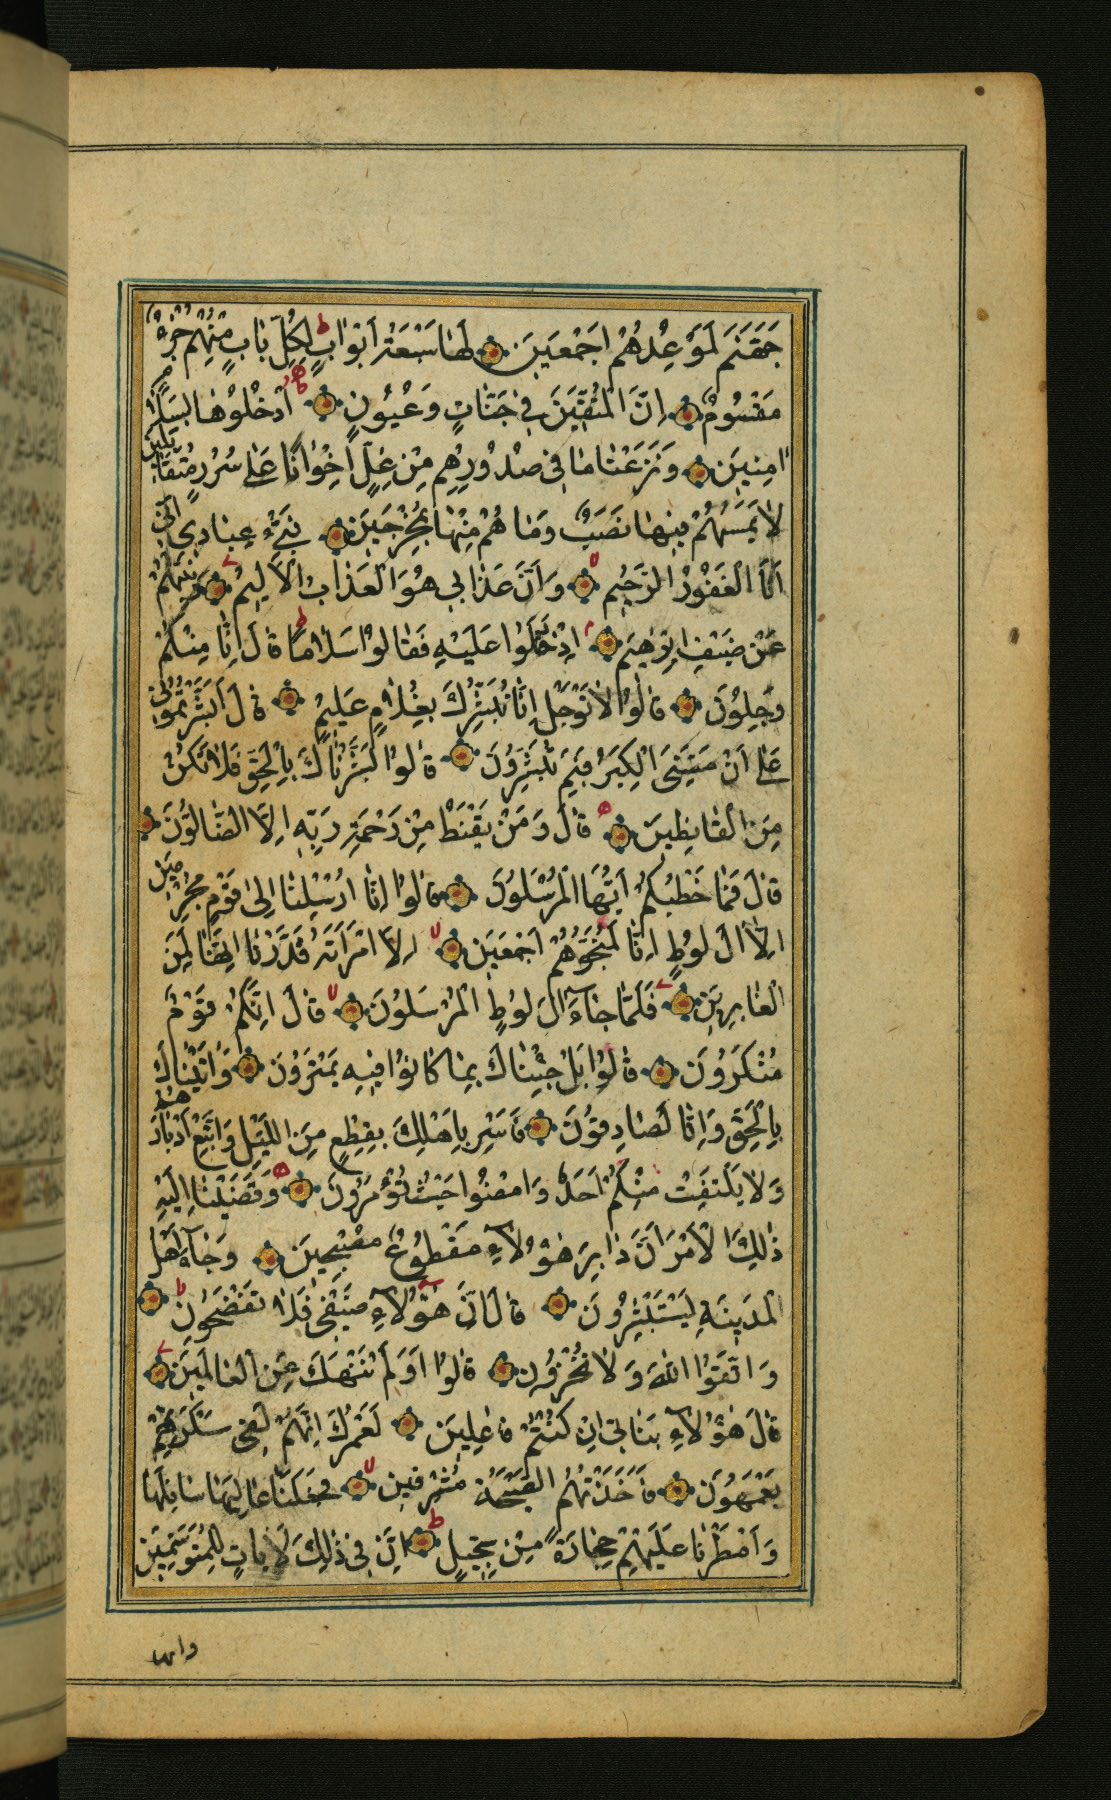 جَهَنَّمَ لَمَوْعِدُهُمْ اَجْمَعِينَ لَهَا سَبْعَةُ اَبْوَابٍ لِكُلِّ بَابٍ مِنْهُمْ جُزْءٌ
مَقْسُومٌ اِنَّ الْمُتَّقِينَ فِي جَنَّاتٍ وَعُيُونٍ اُدْخُلُوهَا بِسَلَامٍ
اٰمِنِينَ وَنَزَعْنَا مَا فِي صُدُورِهِمْ مِنْ غِلٍّ اِخْوَانًا عَلٰى سُرُرٍ مُتَقَابِلِينَ
لَا يَمَسُّهُمْ فِيهَا نَصَبٌ وَمَا هُمْ مِنْهَا بِمُخْرَجِينَ نَبِّئْ عِبَادِي اَنِّي
اَنَا الْغَفُورُ الرَّحِيمُ وَاَنَّ عَذَابِي هُوَ الْعَذَابُ الْاَلِيمُ وَنَبِّئْهُمْ
عَنْ ضَيْفِ اِبْرٰهِيمَ اِذْ دَخَلُوا عَلَيْهِ فَقَالُوا سَلَامًا قَالَ اِنَّا مِنْكُمْ
وَجِلُونَ قَالُوا لَا تَوْجَلْ اِنَّا نُبَشِّرُكَ بِغُلَامٍ عَلِيمٍ قَالَ اَبَشَّرْتُمُونِي
عَلٰى اَنْ مَسَّنِيَ الْكِبَرُ فَبِمَ تُبَشِّرُونَ قَالُوا بَشَّرْنَاكَ بِالْحَقِّ فَلَا تَكُنْ
مِنَ الْقَانِطِينَ قَالَ وَمَنْ يَقْنَطُ مِنْ رَحْمَةِ رَبِّهِ اِلَّا الضَّالُّونَ
قَالَ فَمَا خَطْبُكُمْ اَيُّهَا الْمُرْسَلُونَ قَالُوا اِنَّا اُرْسِلْنَا اِلٰى قَوْمٍ مُجْرِمِينَ
اِلَّا اٰلَ لُوطٍ اِنَّا لَمُنَجُّوهُمْ اَجْمَعِينَ اِلَّا امْرَاَتَهُ قَدَّرْنَا اِنَّهَا لَمِنَ
الْغَابِرِينَ فَلَمَّا جَاءَ اٰلَ لُوطٍ الْمُرْسَلُونَ قَالَ اِنَّكُمْ قَوْمٌ
مُنْكَرُونَ قَالُوا بَلْ جِئْنَاكَ بِمَا كَانُوا فِيهِ يَمْتَرُونَ وَاَتَيْنَاكَ
بِالْحَقِّ وَاِنَّا لَصَادِقُونَ فَاَسْرِ بِاَهْلِكَ بِقِطْعٍ مِنَ اللَّيْلِ وَاتَّبِعْ اَدْبَارَهُمْ
وَلَا يَلْتَفِتْ مِنْكُمْ اَحَدٌ وَامْضُوا حَيْثُ تُؤْمَرُونَ وَقَضَيْنَا اِلَيْهِ
ذٰلِكَ الْاَمْرَ اَنَّ دَابِرَ هٰؤُلَاءِ مَقْطُوعٌ مُصْبِحِينَ وَجَاءَ اَهْلُ
الْمَدِينَةِ يَسْتَبْشِرُونَ قَالَ اِنَّ هٰؤُلَاءِ ضَيْفِي فَلَا تَفْضَحُونِ
وَاتَّقُوا اللّٰهَ وَلَا تُخْزُونِ قَالُوا اَوَلَمْ نَنْهَكَ عَنِ الْعَالَمِينَ
قَالَ هٰؤُلَاءِ بَنَاتِي اِنْ كُنْتُمْ فَاعِلِينَ لَعَمْرُكَ اِنَّهُمْ لَفِي سَكْرَتِهِمْ
يَعْمَهُونَ فَاَخَذَتْهُمُ الصَّيْحَةُ مُشْرِقِينَ فَجَعَلْنَا عَالِيَهَا سَافِلَهَا
وَاَمْطَرْنَا عَلَيْهِمْ حِجَارَةً مِنْ سِجِّيلٍ اِنَّ فِي ذٰلِكَ لَاٰيَاتٍ لِلْمُتَوَسِّمِينَ
وانها